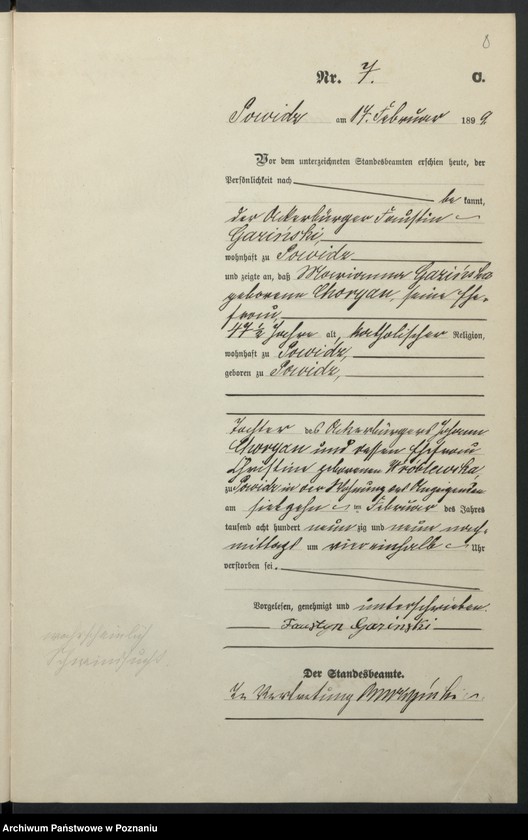 8
Nr. 7. C.
Powidz am 14. Februar 1899.
Vor dem unterzeichneten Standesbeamten erschien heute, der
Persönlichkeit nach
be kannt,
der Ackerbürger Faustin
Gaziński,
wohnhaft zu Powidz
und zeigte an, daß Marianna Gazińska
geborene Chorzan, seine Ehe-
frau,
47 1/2 Jahre alt, katholischer Religion,
wohnhaft zu Powidz,
geboren zu Powidz,
Tochter des Ackerbürgers Johann
Chorzan und dessen Ehefrau
Christine geborenen Wróblewska
zu Powidz in der Wohnung des Anzeigenden
am
Februar des Jahres
tausend acht hundert neun zig und neun nach-
mittags um vier einhalb Uhr
verstorben sei.
Vorgelesen, genehmigt und unterschrieben.
Faustyn Gazinski
Der Standesbeamte.
In Vertretung
wahrscheinlich
Schwindsucht.
Archiwum Państwowe w Poznaniu